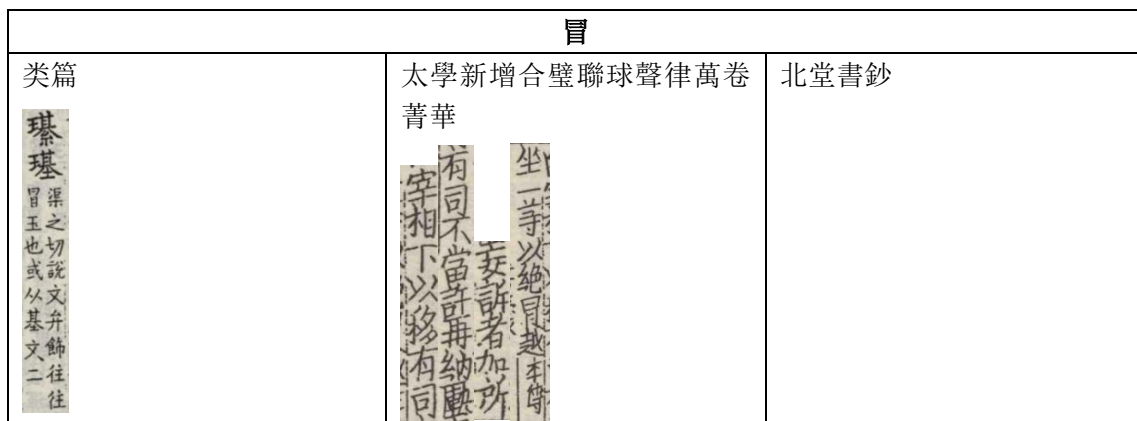 冒
类篇
太學新增合璧聯球聲律萬卷菁華
北堂書鈔
璂
渠之切說文弁飾往往
冒玉也或从基文二
坐一等以絕冒越本傳
妄訴者加所
有司不當許再納
宰相下以移有司